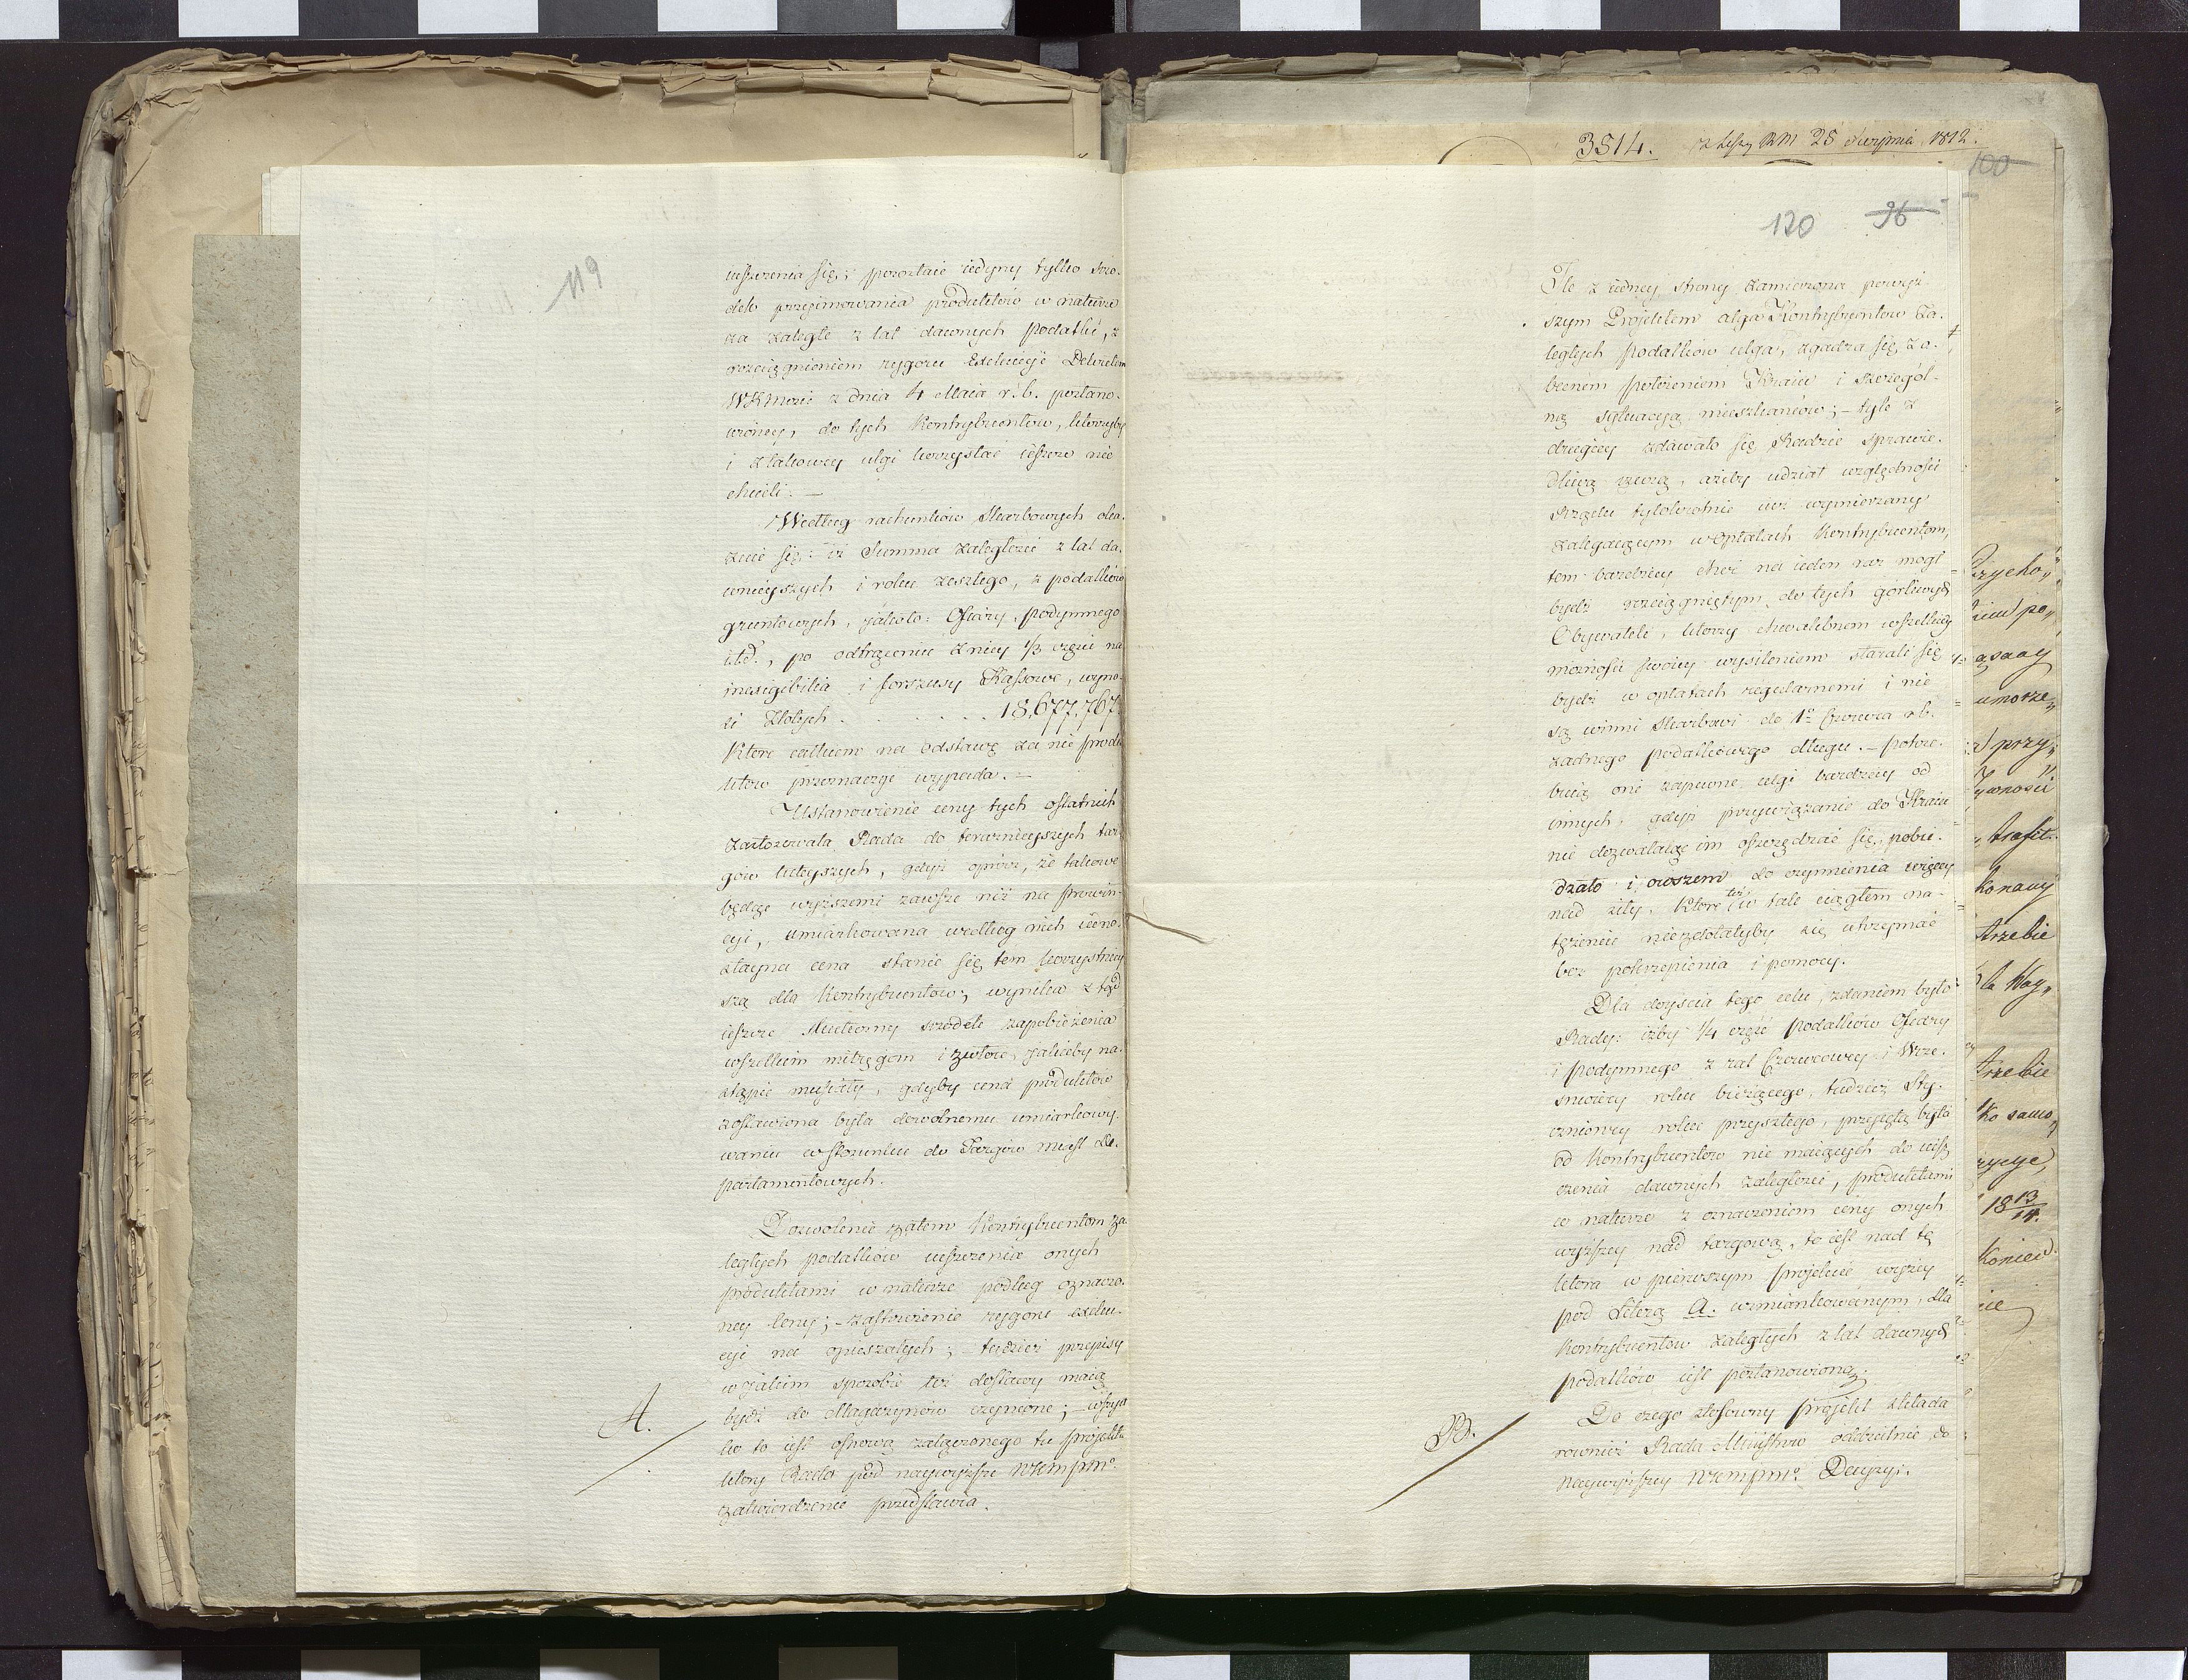 119
iszczenia się; pozostaie iedyny tylko szro-
dek przyimowania produktów w naturze
za zaległe z lat dawnych podatki, z
rozciągnieniem rygoru Exekucyi Dekretem
WKMości z dnia 4 Maia r. b. postano-
wioney, do tych Kontrybuentow, którzyby
i z takowey ulgi korzystać ieszcze nie
chcieli. —
Według rachunków Skarbowych oka-
zuie się: iż Summa zaległości z lat da-
wnieyszych i roku zeszłego, z podatków
gruntowych, jakoto: Ofiary, podymnego
itd., po odtrąceniu z niey 1/3 części na
inexigibilia i forszusy Kassowe, wyno-
si Złotych . . . . . . . 18,677,767.
Które całkiem na odstawę za nie produ-
któw przeznaczyć wypada. —
Ustanowienie ceny tych ostatnich
zastosowała Rada do teraznieyszych tar-
gów tuteyszych, gdyż oprócz, że takowe
będąc wyższemi zawsze niż na prowin-
cyi, umiarkowana według nich iedno-
stayna cena stanie się tém korzystniey-
szą dla Kontrybuentow; wynika z tąd
ieszcze skuteczny szrodek zapobieżenia
wszelkim mitręgom i zwłoce, jakieby na-
stąpić musiały, gdyby cena produktów
zostawiona była dowolnemu umiarkowy-
waniu w stosunku do Targów miast De-
partamentowych.
Dozwolenie zatem Kontrybuentom za-
ległych podatków uiszczenia onych
produktami w naturze podług oznaczo-
ney Ceny; — zastrzeżenie rygoru exeku-
cyi na opieszałych; — tudzież przepisy
w jakim sposobie też dostawy maią
bydź do Magazynów czynione; — wszyst-
A. ko to iest osnową załączonego tu projektu
który Rada pod naywyższe WKMPMo
zatwierdzenie przedstawia.
3514. z Sessy RM 25 Sierpnia 1812.
100
120 96
Ile z iedney strony zamierzona powyż-
szym Projektem ulga Kontrybuentow za-
ległych podatków ulga, zgadza się z o-
becném położeniem Kraiu i szczegól-
ną sytuacyą mieszkańców; — tyle z
drugiey zdawało się Radzie sprawie-
dliwą rzeczą, ażeby udział względności
Rządu tylokrotnie iuż wymierzany
zalegaiącym w opłatach Kontrybuentom,
tem bardziey choć na ieden raz mógł
bydź rozciągniętym do tych gorliwych
Obywateli, którzy chwalebnem wszelkiey
możności swoiey wysileniem starali się
bydź w opłatach regularnemi i nie
są winni Skarbowi do 1o Czerwca r. b.
żadnego podatkowego długu. — Potrze-
buią oni zapewne ulgi bardziey od
innych, gdyż przywiązanie do Kraiu
nie dozwalaiąc im oszczędzać się, pobu-
dzało i owszem do czynienia więcey
nad siły, które też w tak ciągłem na-
tężeniu niezdołałyby się utrzymać
bez pokrzepienia i pomocy.
Dla doyścia tego celu, zdaniem było
Rady: iżby 1/4 część podatków Ofiary
i podymnego z rat Czerwcowey i Wrze-
śniowey roku bieżącego, tudzież Sty-
czniowey roku przyszłego, przyjętą była
od Kontrybuentow nie maiących do uisz-
czenia dawnych zaległości, produktami
w naturze z oznaczeniem ceny onych
wyższey nad targową, to iest nad tę
która w pierwszym projekcie wyżey
pod Literą A. wzmiankowanym, dla
Kontrybuentow zaległych z lat dawnych
podatków iest postanowioną.
B. Do czego stosowny projekt składa
rownież Rada Ministrów oddzielnie do
Naywyższey WKMPMo Decyzyi.
Przycho„
po„
umorze„
przy„
trafit.
konany
trzebie
la Nay„
trzebie
ko samo„
1813/14.
Koniec